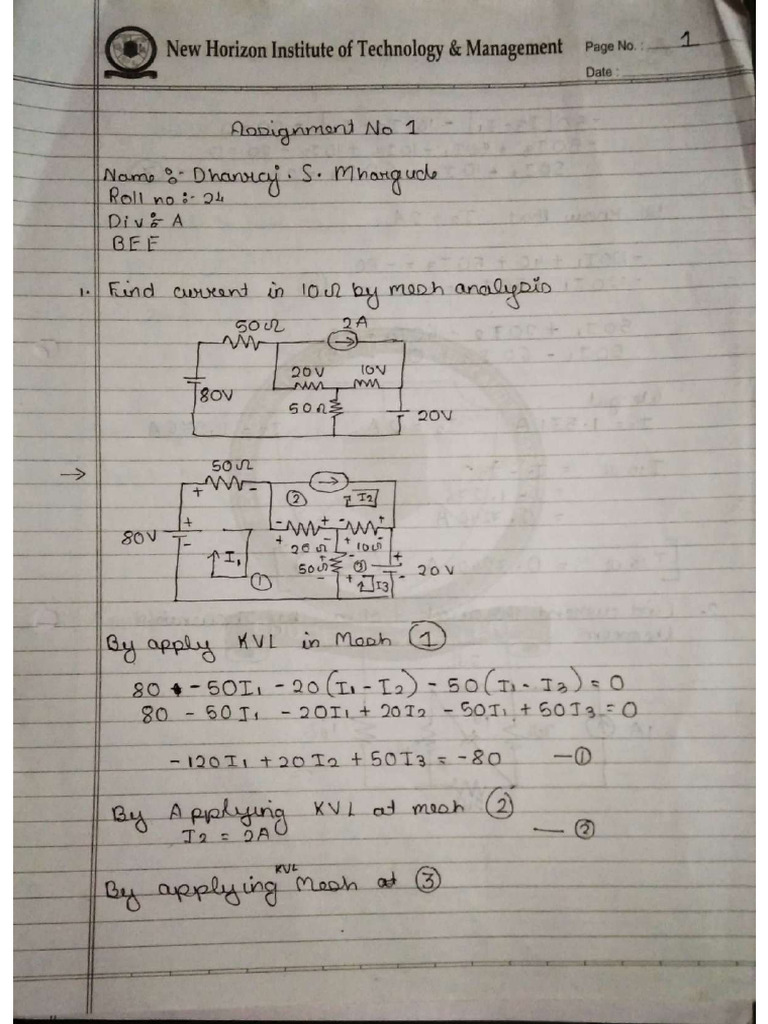 New Horizon Institute of Technology & Management
Page No. : 1
Date :
Assignment No 1
Name :- Dhanraj . S. Mhargude
Roll no :- 24
Div :- A
BEE
1. Find current in 10Ω by mesh analysis
50Ω 2A
20V 10V
80V
50Ω
20V
→ 50Ω
+ -
② I2
80V + -
- + - +
+ - + -
20Ω 10Ω
I1 50Ω ③ 20V
① I3
By apply KVL in Mesh ①
80 - 50I1 - 20(I1 - I2) - 50(I1 - I3) = 0
80 - 50I1 - 20I1 + 20I2 - 50I1 + 50I3 = 0
-120I1 + 20I2 + 50I3 = -80 —①
By Applying KVL at mesh ②
I2 = 2A —②
By applying KVL Mesh at ③